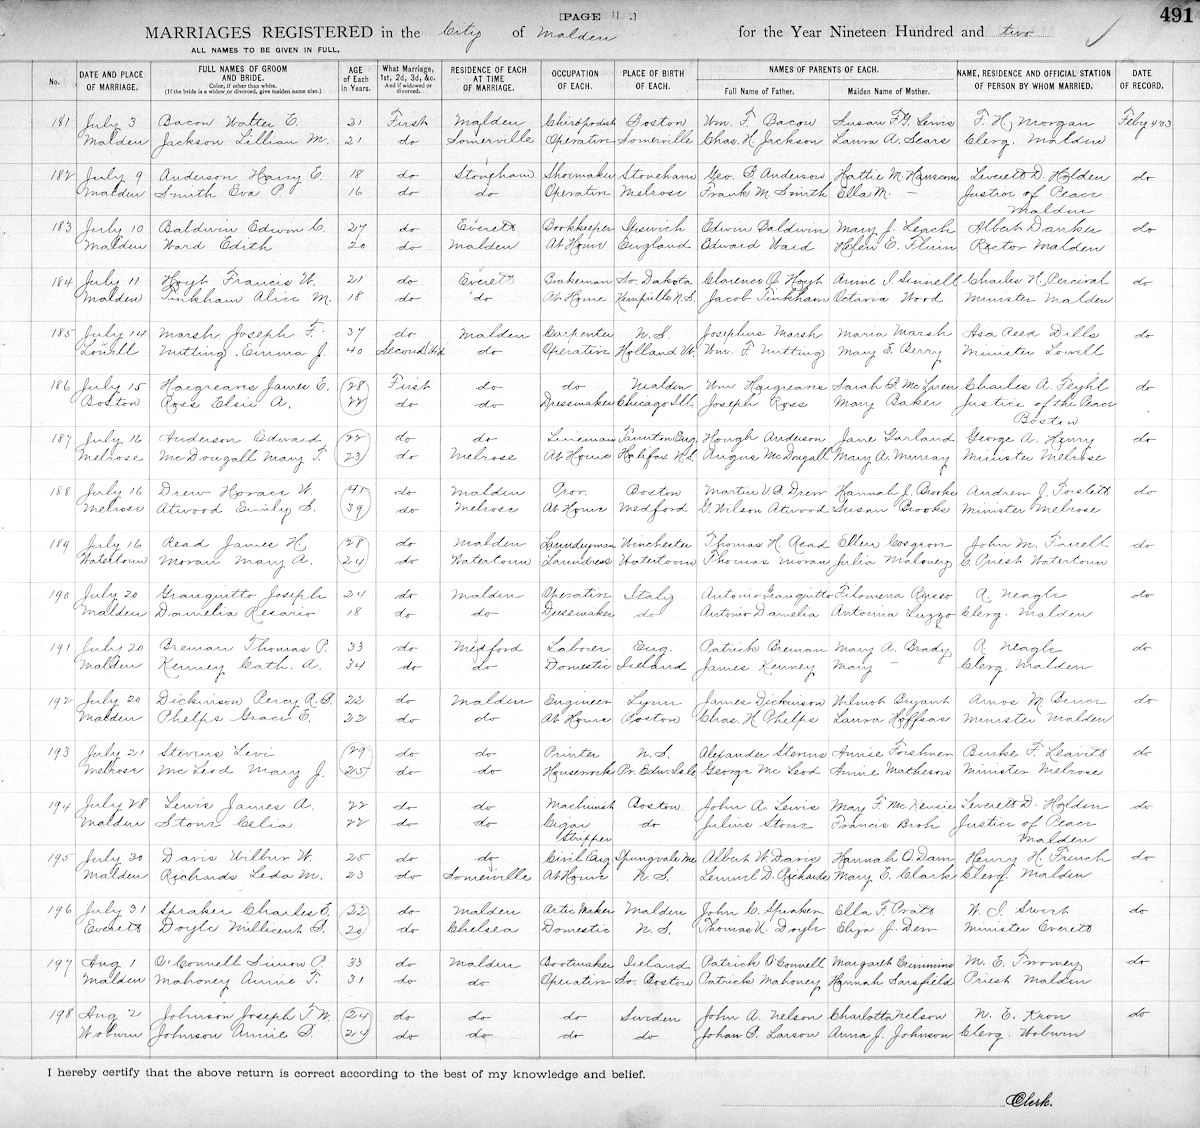 [PAGE 11.]
491
MARRIAGES REGISTERED in the City of Malden for the Year Nineteen Hundred and two
ALL NAMES TO BE GIVEN IN FULL.
No. | DATE AND PLACE OF MARRIAGE. | FULL NAMES OF GROOM AND BRIDE. Color, if other than white. (If the bride is a widow, or divorced, give maiden name also.) | AGE of Each in Years. | What Marriage, 1st, 2d, 3d, &c. And if widowed or divorced. | RESIDENCE OF EACH AT TIME OF MARRIAGE. | OCCUPATION OF EACH. | PLACE OF BIRTH OF EACH. | NAMES OF PARENTS OF EACH. Full Name of Father. Maiden Name of Mother. | NAME, RESIDENCE AND OFFICIAL STATION OF PERSON BY WHOM MARRIED. | DATE OF RECORD.
181 July 3 Bacon Walter E. 21 First Malden Chiropodist Boston Wm. F. Bacon Susan F. G. Lewis F. H. Morgan Feby 4 03
Malden Jackson Lillian M. 21 do Somerville Operative Somerville Chas. H. Jackson Laura A. Sears Clerg. Malden
182 July 9 Anderson Harry E. 18 do Stoneham Shoemaker Stoneham Geo. B. Anderson Hattie M. Hanscom Leverett D. Holden do
Malden Smith Eva P. 16 do do Operative Melrose Frank M. Smith Ella M. — Justice of Peace
Malden
183 July 10 Baldwin Edwin C. 27 do Everett Bookkeeper Ipswich Edwin Baldwin Mary J. Leach Albert Danker do
Malden Ward Edith 20 do Malden At Home England Edward Ward Helen E. Rector Malden
184 July 11 Hoyt Francis W. 21 do Everett Brakeman So. Dakota Clarence A. Hoyt Annie I. Sennell Charles H. Percival do
Malden Pinkham Alice M. 18 do do At Home N.S. Jacob Pinkham Octavia Wood Minister Malden
185 July 14 Marsh Joseph F. 37 do Malden Carpenter N.S. Josephus Marsh Maria Marsh Asa Reed Dills do
Lowell Nutting Emma J. 40 Second Wid do Operative Holland Vt. Wm. F. Nutting Mary E. Berry Minister Lowell
186 July 15 Hargreaves James E. 28 First do do Malden Wm Hargreaves Sarah B. McLaren Charles A. do
Boston Ross Elsie A. 22 do do Dressmaker Chicago Ill. Joseph Ross Mary Baker Justice of the Peace
Boston
187 July 16 Anderson Edward 22 do do Lineman Taunton Eng. Hough Anderson Jane Garland George A. Henry do
Melrose McDougall Mary T. 23 do Melrose At Home Halifax N.S. Angus McDougall Mary A. Murray Minister Melrose
188 July 16 Drew Horace W. 41 do Malden Prov. Boston Martin V. B. Drew Hannah J. Brooks Andrew J. do
Melrose Atwood Emily S. 39 do Melrose At Home Medford G. Wilson Atwood Susan Brooks Minister Melrose
189 July 16 Read James H. 28 do Malden Laundryman Winchester Thomas H. Read Ellen Cosgron John M. Farrell do
Watertown Moran Mary A. 24 do Watertown Laundress Watertown Thomas Moran Julia Mahoney C. Priest Watertown
190 July 20 Joseph 24 do Malden Operative Italy Antonio Filomena Russo R. Neagle do
Malden Damelia Rosario 18 do do Dressmaker do Antonio Damelia Antonina Luzzo Clerg. Malden
191 July 20 Brennan Thomas P. 33 do Medford Laborer Eng. Patrick Brennan Mary A. Brady R. Neagle do
Malden Kenney Cath. A. 34 do do Domestic Ireland James Kenney Mary — Clerg. Malden
192 July 20 Dickinson Percy R. B. 22 do Malden Engineer Lynn James Dickinson Wilmot Bryant Amos M. Bruce do
Malden Phelps Grace E. 22 do do At Home Boston Chas. H. Phelps Laura Hoffsas Minister Malden
193 July 21 Stevens Levi 29 do do Printer N.S. Alexander Stevens Annie Forshner Burke F. Leavitt do
Melrose McLeod Mary J. 25 do do Housework Pr. Edw. Isle George McLeod Annie Matheson Minister Melrose
194 July 28 Lewis James A. 22 do do Machinist Boston John A. Lewis May F. McKensie Leverett D. Holden do
Malden Stone Celia 22 do do Cigar Stripper do Julius Stone Francis Broh Justice of Peace
Malden
195 July 30 Davis Wilbur W. 25 do do Civil Eng Springvale Me Albert W. Davis Hannah O. Dam Henry H. French do
Malden Richards Leda M. 23 do Somerville At Home N.S. Lemuel D. Richards Mary E. Clark Clerg. Malden
196 July 31 Spraker Charles E. 22 do Malden Artic Maker Malden John C. Spraker Ella F. Pratt W. I. do
Everett Doyle Millicent S. 20 do Chelsea Domestic N.S. Thomas U. Doyle Eliza J. Dew Minister Everett
197 Aug 1 O'Connell Simon P. 33 do Malden Bootmaker Ireland Patrick O'Connell Margaret Crimmins M. E. Twomey do
Malden Mahoney Annie T. 31 do do Operative So. Boston Patrick Mahoney Hannah Sarsfield Priest Malden
198 Aug 2 Johnson Joseph T. W. 24 do do do Sweden John A. Nelson Charlotta Nelson N. E. Kron do
Woburn Johnson Annie S. 24 do do do do Johan P. Larson Anna J. Johnson Clerg. Woburn
I hereby certify that the above return is correct according to the best of my knowledge and belief.
Clerk.